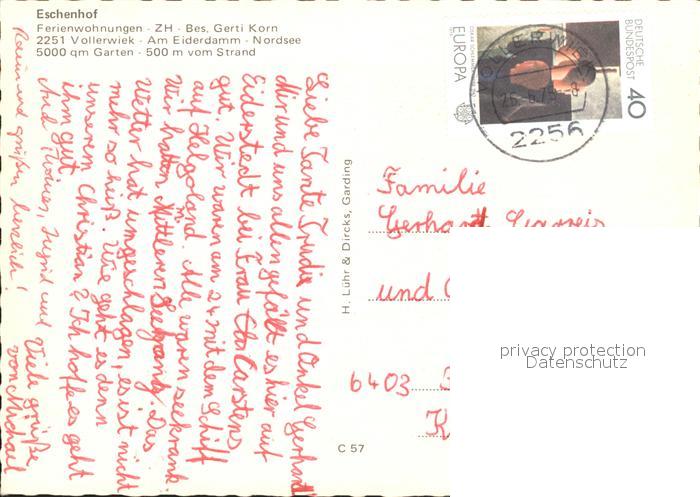 Eschenhof
Ferienwohnungen - ZH - Bes. Gerti Korn
2251 Vollerwiek - Am Eiderdamm - Nordsee
5000 qm Garten - 500 m vom Strand
Liebe Tante Trudie und Onkel Gerhardt
Mir und uns allen gefällt es hier auf
Eiderstedt bei Frau Carstens
gut. Wir waren am 24 mit dem Schiff
auf Helgoland. Alle waren seekrank.
Wir hatten Mittleren Seegang. Das
Wetter hat umgeschlagen, es ist nicht
mehr so heiß. Wie geht es denn
unserem Christian? Ich hoffe es geht
ihm gut. Viele grüße
von Michael
Auch Ingrid und
grüßen herzlich!
H. Lühr & Dircks, Garding
C 57
DEUTSCHE
BUNDESPOST
40
EUROPA
2256
Familie
Gerhardt
und
6403
privacy protection
Datenschutz